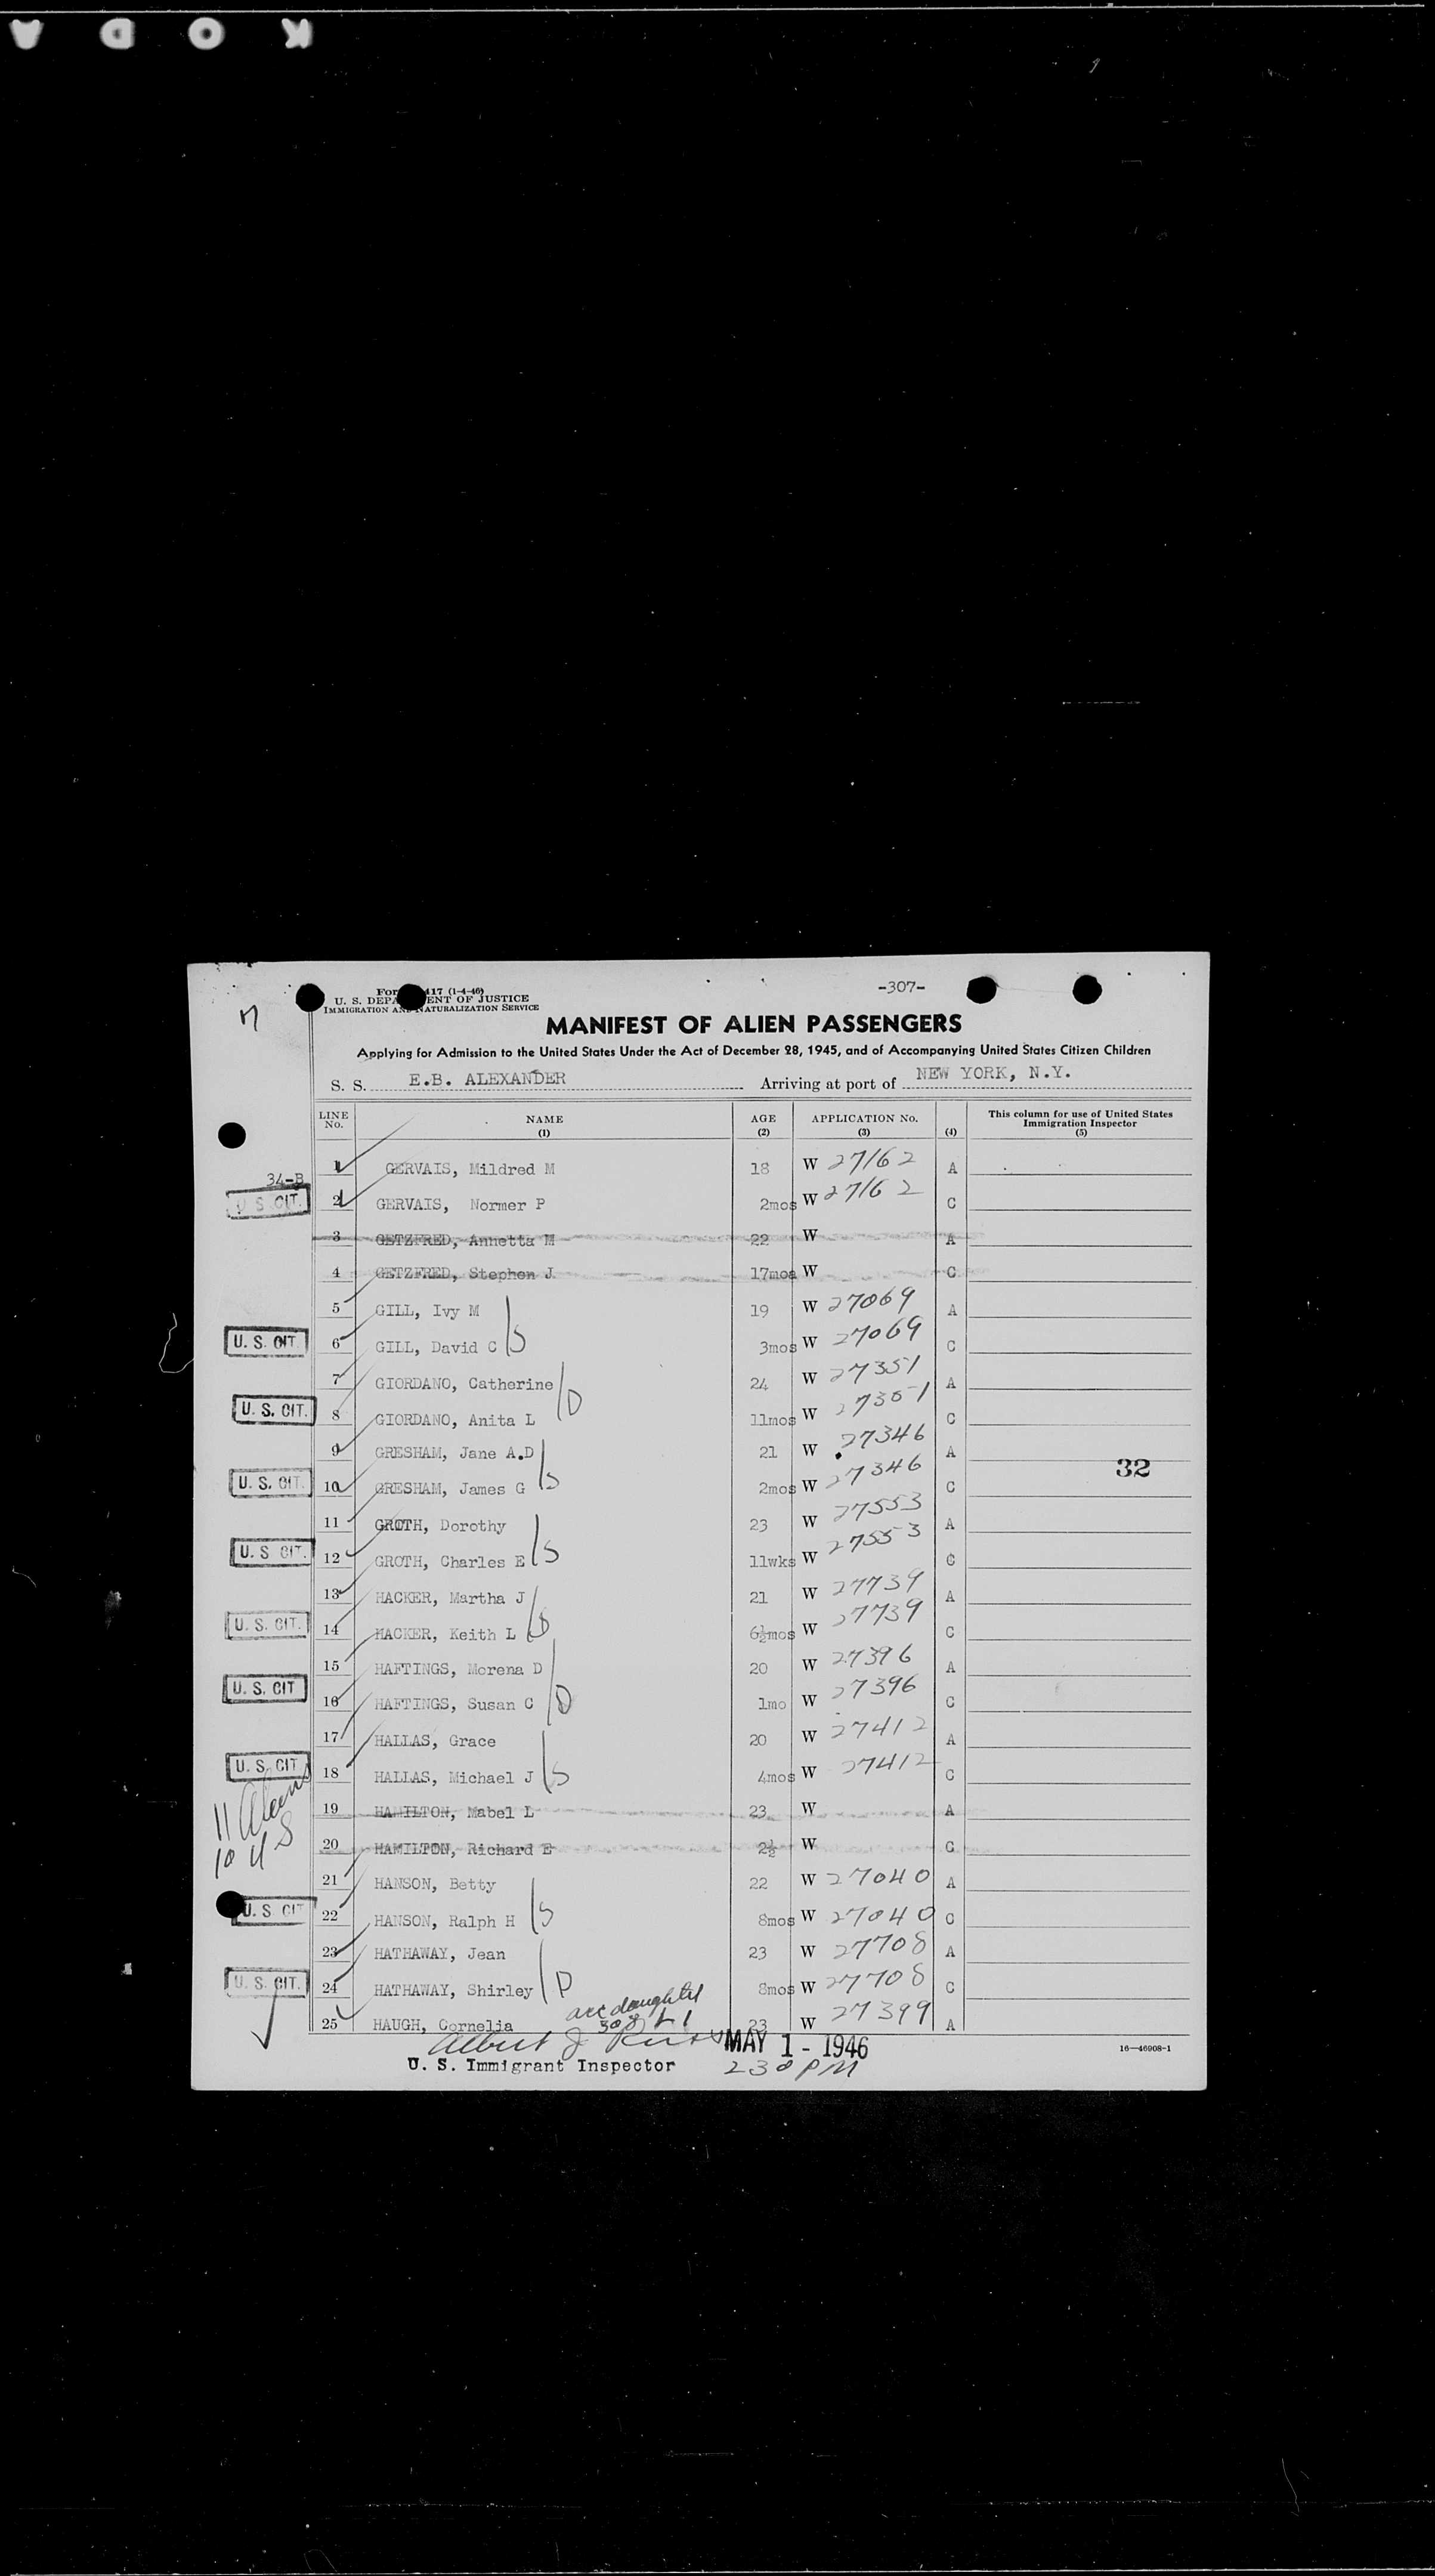 KODA
Form I-417 (1-4-46)
U. S. DEPARTMENT OF JUSTICE
IMMIGRATION AND NATURALIZATION SERVICE
-307-
MANIFEST OF ALIEN PASSENGERS
Applying for Admission to the United States Under the Act of December 28, 1945, and of Accompanying United States Citizen Children
S. S. E.B. ALEXANDER Arriving at port of NEW YORK, N.Y.
LINE No. NAME (1) AGE (2) APPLICATION No. (3) (4) This column for use of United States Immigration Inspector (5)
1 GERVAIS, Mildred M 18 W 27162 A
34-B
U S CIT. 2 GERVAIS, Normer P 2mos W 27162 C
3 GETZFRED, Annetta M 22 W A
4 GETZFRED, Stephen J 17mos W C
5 GILL, Ivy M 19 W 27069 A
U. S. CIT. 6 GILL, David C S 3mos W 27069 C
7 GIORDANO, Catherine 24 W 27351 A
U. S. CIT. 8 GIORDANO, Anita L D 11mos W 27351 C
9 GRESHAM, Jane A.D 21 W 27346 A
32
U. S. CIT. 10 GRESHAM, James G S 2mos W 27346 C
11 GROTH, Dorothy 23 W 27553 A
U. S CIT. 12 GROTH, Charles E S 11wks W 27553 C
13 HACKER, Martha J 21 W 27739 A
U. S. CIT. 14 HACKER, Keith L S 6½mos W 27739 C
15 HAFTINGS, Morena D 20 W 27396 A
U. S. CIT 16 HAFTINGS, Susan C D 1mo W 27396 C
17 HALLAS, Grace 20 W 27412 A
U. S. CIT 18 HALLAS, Michael J S 4mos W 27412 C
11 Aliens
10 U S
19 HAMILTON, Mabel L 23 W A
20 HAMILTON, Richard E 2½ W C
21 HANSON, Betty 22 W 27040 A
U. S CIT 22 HANSON, Ralph H S 8mos W 27040 C
23 HATHAWAY, Jean 23 W 27708 A
U. S. CIT. 24 HATHAWAY, Shirley D 8mos W 27708 C
acc daughter
308 L 1
25 HAUGH, Cornelia 23 W 27399 A
Albert J MAY 1 - 1946
16—46908-1
U. S. Immigrant Inspector 230 PM